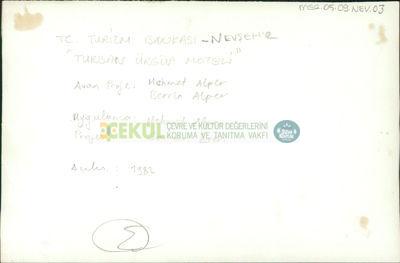 MSG.05.09.NEV.03
T.C. TURİZM BANKASI - NEVŞEHİR
"TURBAN ÜRGÜP MOTELİ"
Avan Proje: Mehmet Alper
Berrin Alper
Uygulama
Proje
ÇEKÜL
ÇEVRE VE KÜLTÜR DEĞERLERİNİ
KORUMA VE TANITMA VAKFI
: 1982